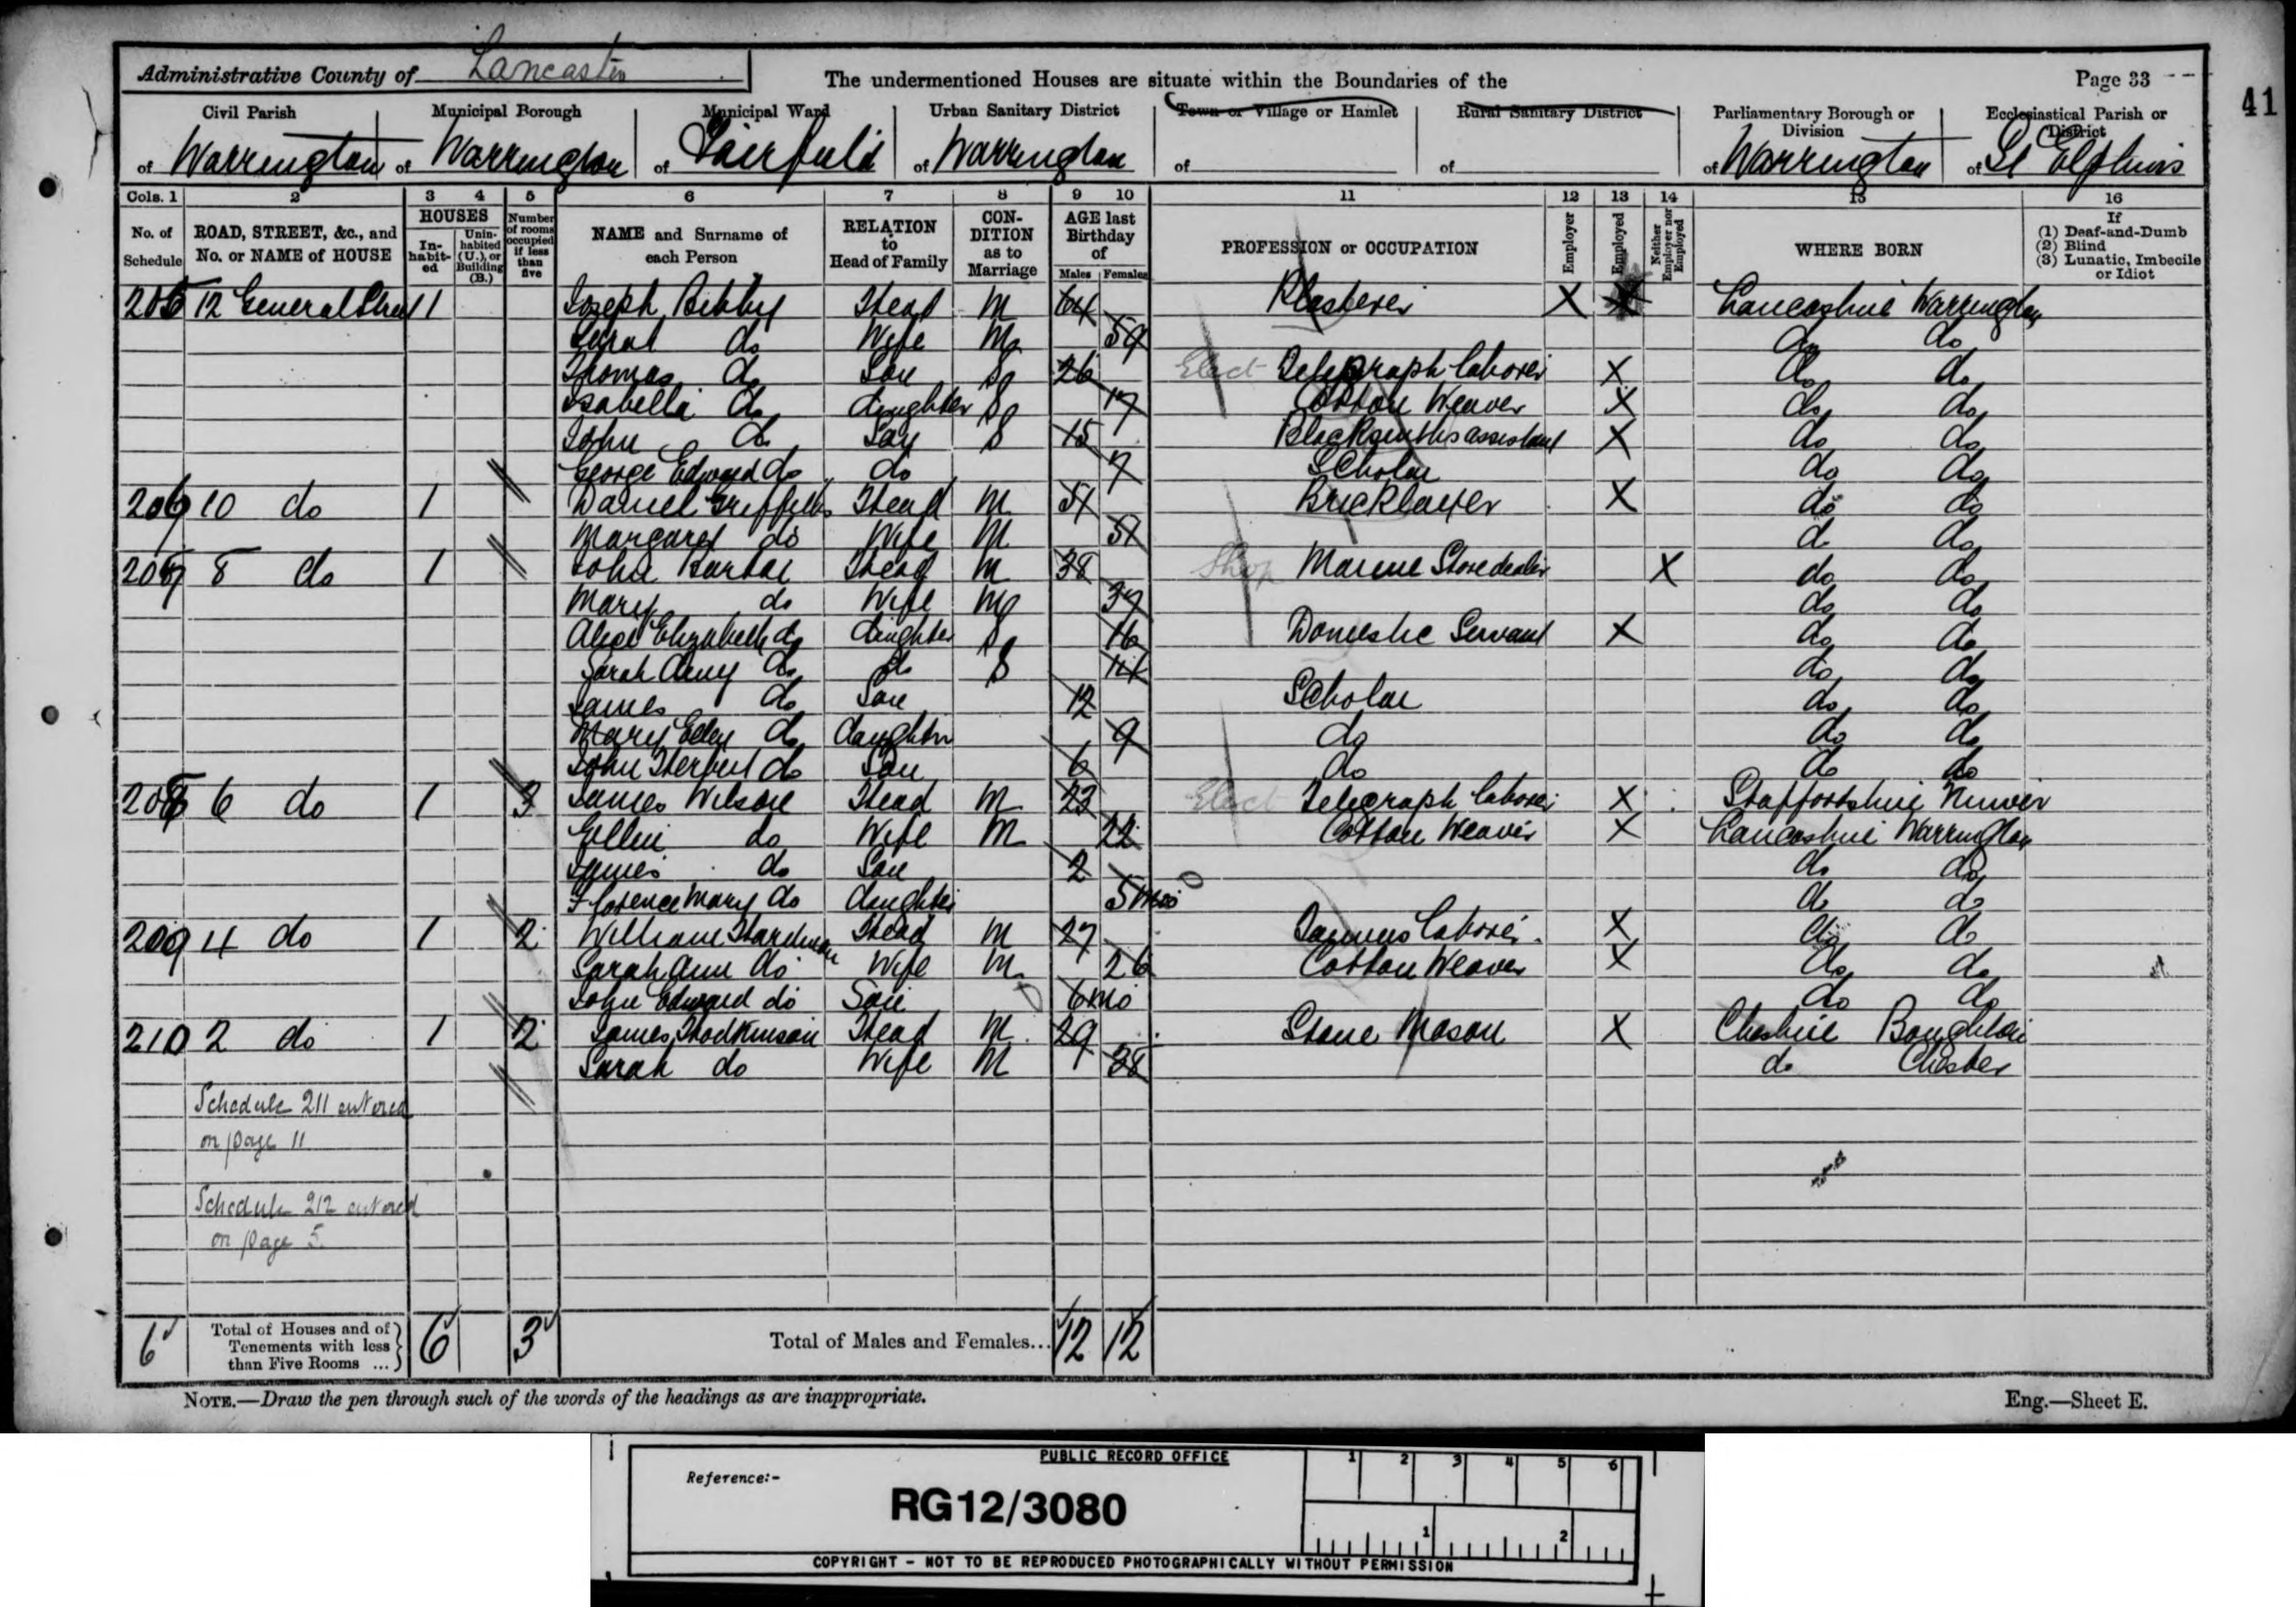 Administrative County of Lancaster
The undermentioned Houses are situate within the Boundaries of the
Page 33
41
Civil Parish Municipal Borough Municipal Ward Urban Sanitary District Town or Village or Hamlet Rural Sanitary District Parliamentary Borough or Division Ecclesiastical Parish or District
of Warrington of Warrington of Fairfield of Warrington of of of Warrington of St Elphins
Cols. 1 2 3 4 5 6 7 8 9 10 11 12 13 14 15 16
No. of Schedule ROAD, STREET, &c., and No. or NAME of HOUSE HOUSES Inhabited Uninhabited (U.), or Building (B.) Number of rooms occupied if less than five NAME and Surname of each Person RELATION to Head of Family CONDITION as to Marriage AGE last Birthday of Males Females PROFESSION or OCCUPATION Employer Employed Neither Employer nor Employed WHERE BORN If (1) Deaf-and-Dumb (2) Blind (3) Lunatic, Imbecile or Idiot
205 12 General Street 1 Joseph Bibby Head M 64 Plasterer X X Lancashire Warrington
Sarah do Wife M 59 do do
Thomas do Son S 26 Elect Telegraph laborer X do do
Isabella do daughter S 17 Cotton Weaver X do do
John do Son S 15 Blacksmiths assistant X do do
George Edward do do 7 Scholar do do
206 10 do 1 Daniel Griffiths Head M 51 Bricklayer X do do
Margaret do Wife M 51 do do
207 8 do 1 John Head M 38 Shop Marine Store dealer X do do
Mary do Wife M 37 do do
Alice Elizabeth do daughter S 16 Domestic Servant X do do
Sarah Amy do do S 14 do do
James do Son 12 Scholar do do
Mary do daughter 9 do do do
John Herbert do Son 6 do do do
208 6 do 1 3 James Wilson Head M 23 Elect Telegraph laborer X Staffordshire
Ellen do Wife M 22 Cotton Weaver X Lancashire Warrington
James do Son 2 do do
Florence Mary do daughter 5 mos do do
209 4 do 1 2 William Hardman Head M 27 laborer X do do
Sarah Ann do Wife M 26 Cotton Weaver X do do
John Edward do Son 6 mo do do
210 2 do 1 2 James Hodkinson Head M 29 Stone Mason X Cheshire Boughton
Sarah do Wife M 28 do Chester
Schedule 211 entered
on page 11
Schedule 212 entered
on page 5.
6 Total of Houses and of Tenements with less than Five Rooms ... 6 3 Total of Males and Females... 12 12
NOTE.—Draw the pen through such of the words of the headings as are inappropriate.
Eng.—Sheet E.
PUBLIC RECORD OFFICE
1 2 3 4 5 6
Reference:-
RG12/3080
1 2
COPYRIGHT - NOT TO BE REPRODUCED PHOTOGRAPHICALLY WITHOUT PERMISSION